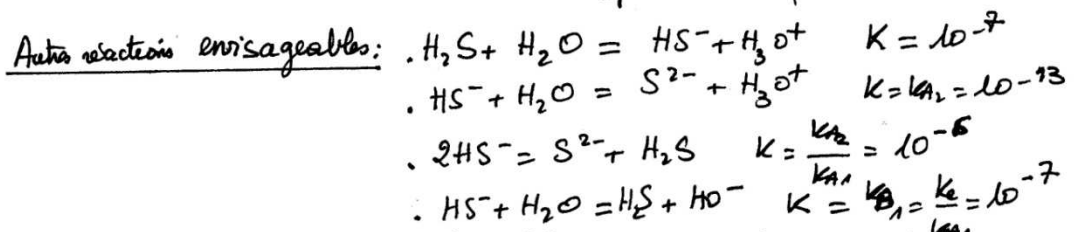 Autres réactions envisageables : . H₂S + H₂O = HS⁻ + H₃O⁺ K = 10⁻⁷
. HS⁻ + H₂O = S²⁻ + H₃O⁺ K = KA₂ = 10⁻¹³
. 2HS⁻ = S²⁻ + H₂S K = KA₂/KA₁ = 10⁻⁶
. HS⁻ + H₂O = H₂S + HO⁻ K = KB₁ = Ke/KA₁ = 10⁻⁷